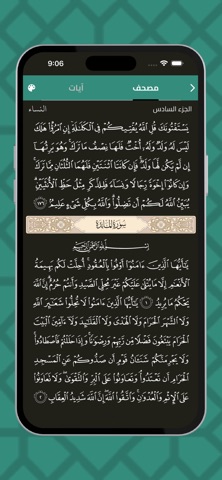 9:06
آيات
مصحف
الجزء السادس
النساء
يَسْتَفْتُونَكَ قُلِ ٱللَّهُ يُفْتِيكُمْ فِى ٱلْكَلَـٰلَةِ إِنِ ٱمْرُؤٌا۟ هَلَكَ
لَيْسَ لَهُۥ وَلَدٌ وَلَهُۥٓ أُخْتٌ فَلَهَا نِصْفُ مَا تَرَكَ وَهُوَ يَرِثُهَآ
إِن لَّمْ يَكُن لَّهَا وَلَدٌ فَإِن كَانَتَا ٱثْنَتَيْنِ فَلَهُمَا ٱلثُّلُثَانِ مِمَّا تَرَكَ
وَإِن كَانُوٓا۟ إِخْوَةً رِّجَالًا وَنِسَآءً فَلِلذَّكَرِ مِثْلُ حَظِّ ٱلْأُنثَيَيْنِ
يُبَيِّنُ ٱللَّهُ لَكُمْ أَن تَضِلُّوا۟ وَٱللَّهُ بِكُلِّ شَىْءٍ عَلِيمٌۢ ١٧٦
سورة المائدة
بِسْمِ ٱللَّهِ ٱلرَّحْمَـٰنِ ٱلرَّحِيمِ
يَـٰٓأَيُّهَا ٱلَّذِينَ ءَامَنُوٓا۟ أَوْفُوا۟ بِٱلْعُقُودِ أُحِلَّتْ لَكُم بَهِيمَةُ
ٱلْأَنْعَـٰمِ إِلَّا مَا يُتْلَىٰ عَلَيْكُمْ غَيْرَ مُحِلِّى ٱلصَّيْدِ وَأَنتُمْ حُرُمٌ إِنَّ ٱللَّهَ
يَحْكُمُ مَا يُرِيدُ ١ يَـٰٓأَيُّهَا ٱلَّذِينَ ءَامَنُوا۟ لَا تُحِلُّوا۟ شَعَـٰٓئِرَ ٱللَّهِ
وَلَا ٱلشَّهْرَ ٱلْحَرَامَ وَلَا ٱلْهَدْىَ وَلَا ٱلْقَلَـٰٓئِدَ وَلَآ ءَآمِّينَ ٱلْبَيْتَ
ٱلْحَرَامَ يَبْتَغُونَ فَضْلًا مِّن رَّبِّهِمْ وَرِضْوَٰنًا وَإِذَا حَلَلْتُمْ فَٱصْطَادُوا۟
وَلَا يَجْرِمَنَّكُمْ شَنَـَٔانُ قَوْمٍ أَن صَدُّوكُمْ عَنِ ٱلْمَسْجِدِ
ٱلْحَرَامِ أَن تَعْتَدُوا۟ وَتَعَاوَنُوا۟ عَلَى ٱلْبِرِّ وَٱلتَّقْوَىٰ وَلَا تَعَاوَنُوا۟
عَلَى ٱلْإِثْمِ وَٱلْعُدْوَٰنِ وَٱتَّقُوا۟ ٱللَّهَ إِنَّ ٱللَّهَ شَدِيدُ ٱلْعِقَابِ ٢